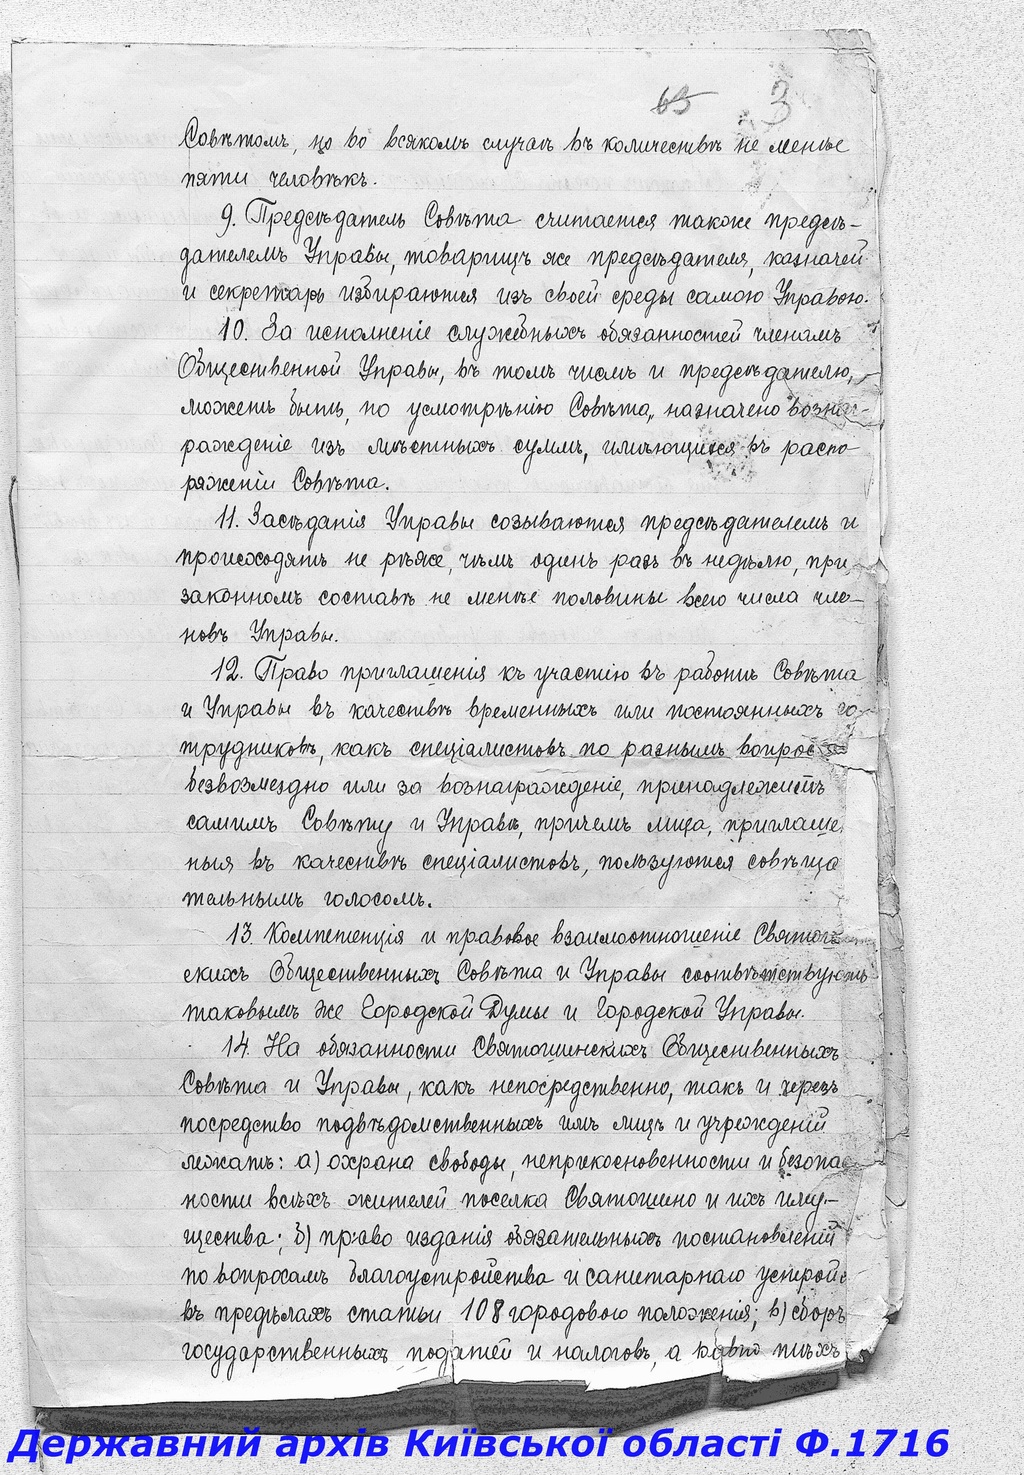 65 3
Совѣтомъ, но во всякомъ случаѣ въ количествѣ не менѣе
пяти человѣкъ.
9. Предсѣдатель Совѣта считается также предсѣ-
дателемъ Управы, товарищъ же предсѣдателя, казначей
и секретарь избираются изъ своей среды самою Управою.
10. За исполненіе служебныхъ обязанностей членамъ
Общественной Управы, въ томъ числѣ и предсѣдателю,
можетъ быть, по усмотрѣнію Совѣта, назначено вознаг-
ражденіе изъ мѣстныхъ суммъ, имѣющихся въ распо
ряженіи Совѣта.
11. Засѣданія Управы созываются предсѣдателемъ и
происходятъ не рѣже, чѣмъ одинъ разъ въ недѣлю, при
законномъ составѣ не менѣе половины всего числа чле-
новъ Управы.
12. Право приглашенія къ участію въ работѣ Совѣта
и Управы въ качествѣ временныхъ или постоянныхъ со-
трудниковъ, какъ спеціалистовъ по разнымъ вопрос
безвозмездно или за вознагражденіе, принадлежитъ
самимъ Совѣту и Управѣ, причемъ лица, приглаше
ныя въ качествѣ спеціалистовъ, пользуются совѣща
тельнымъ голосомъ.
13. Компетенція и правовое взаимоотношеніе Святош
скихъ Общественныхъ Совѣта и Управы соотвѣтствуютъ
таковымъ же Городской Думы и Городской Управы.
14. На обязанности Святошинскихъ Общественныхъ
Совѣта и Управы, какъ непосредственно, такъ и черезъ
посредство подвѣдомственныхъ имъ лицъ и учрежденій
лежатъ: а) охрана свободы, неприкосновенности и безопас
ности всѣхъ жителей поселка Святошино и ихъ иму-
щества; б) право изданія обязательныхъ постановленій
по вопросамъ благоустройства и санитарнаго устрой
въ предѣлахъ статьи 108 городового положенія; в) сборъ
государственныхъ податей и налоговъ, а равно тѣхъ
Державний архів Київської області Ф.1716